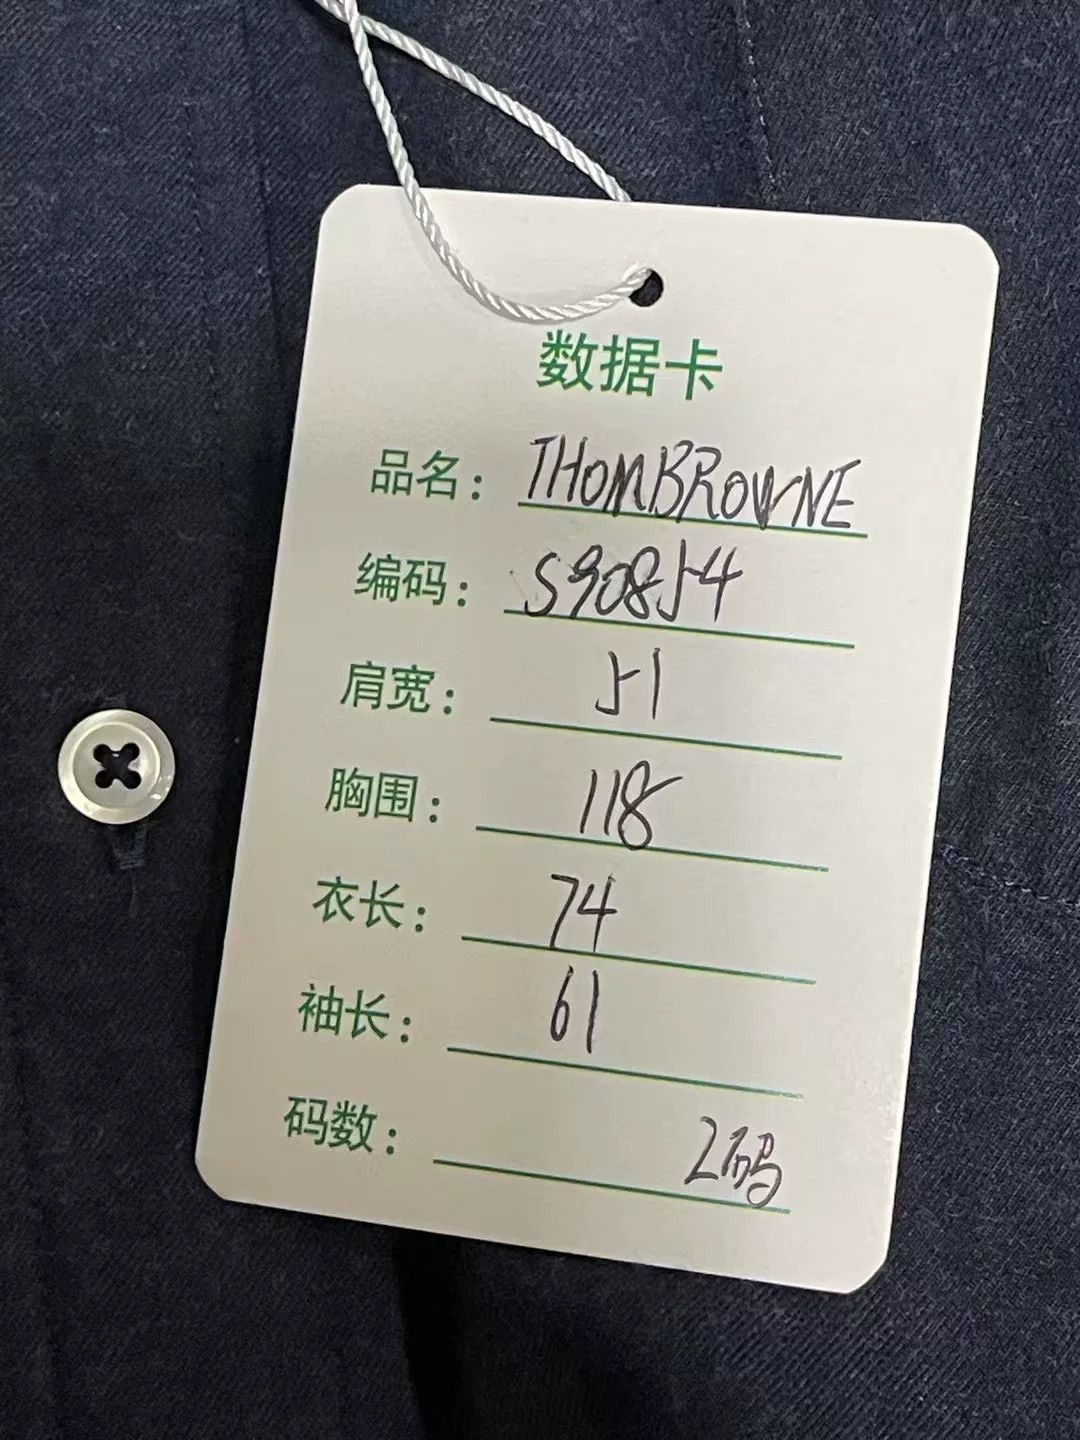 数据卡
品名：THOMBROWNE
编码：S90854
肩宽：51
胸围：118
衣长：74
袖长：61
码数：2码